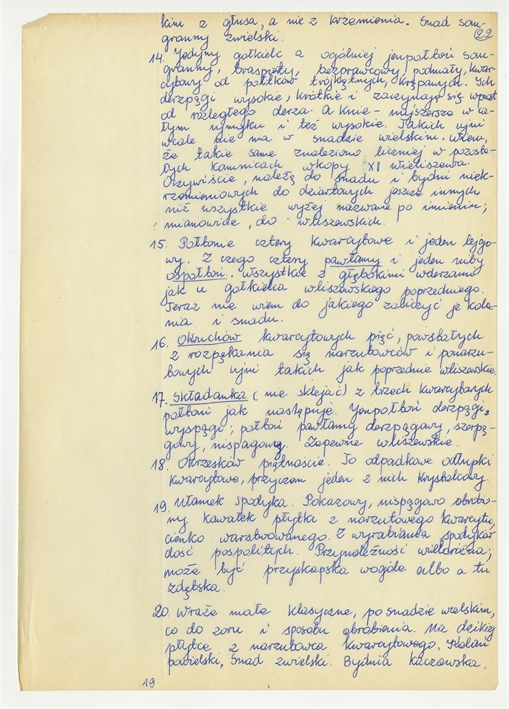 kim z głusa, a nie z krzemienia. Snad san-
granny zwielski.
(22)
14. Jedyny gotkielc a ogólniej jenpotboń san-
granny, braspięty, bezprawcowy, podmały, kwar-
cytowy od potłków trójkętnych, krępanych. Ich
derzpęgi wysokie, krótkie i zaczynają się wprost
od rozległego derza. A knie - najszersza w ca-
łym nżmyłku i też wysokie. Takich ujni
wcale nie ma w snadzie wielskim. Wiem,
że takie same znaleziono liczniej w pozosta-
łych kamnicach wkopy XI Wieliszewa.
Oczywiście, należą do snadu i bydni niek-
rzemieniowych do dziartowych jeszcze innych
niż wszystkie wyżej nazwane po imieniu;
mianowicie, do wliszewskich.
15. Potbonie cztery kwarcytowe i jeden lejgo-
wy. Z czego cztery pawłamy i jeden niby
ospotboń. Wszystkie z głębokimi wderzami
jak u gotkielca wliszewskiego poprzedniego.
Teraz nie wiem do jakiego zaliczyć je kola-
nia i snadu.
16. Okruchów kwarcytowych pięć, powstałych
z rozpękania się narzutowców i ponarzu-
towych ujni takich jak poprzednie wliszewskie.
17. Składanka (nie sklejać) z trzech kwarcytowych
potboni jak następuje. Jenpotboń derzpęgi,
wyspęgo; potboń pawłamny derzpęgawy, szerpę-
gawy, nispagawy. Zapewne wliszewskie.
18. Okrzesków piętnaście. To odpadkowe odłupki
kwarcytowe, przyczem jeden z nich krystaliczny.
19. Ułamek spodyka. Pokazowy, nispęgawo obrobio-
ny kawałek płytki z narzutowego kwarcytu,
cienko warstwowanego. Z wyrabiania spodyków
dość pospolitych. Przynależność wieloraczna;
może być przyskopska wogóle albo a tu
zdębska.
20. Wraże małe klasyczne, po snadzie wielskim,
co do zoru i sposobu obrobienia. Na dzikiej
płytce z narzutowca kwarcytowego. Kolań
pawielski, snad zwielski. Bydnia Kaczawska.
19